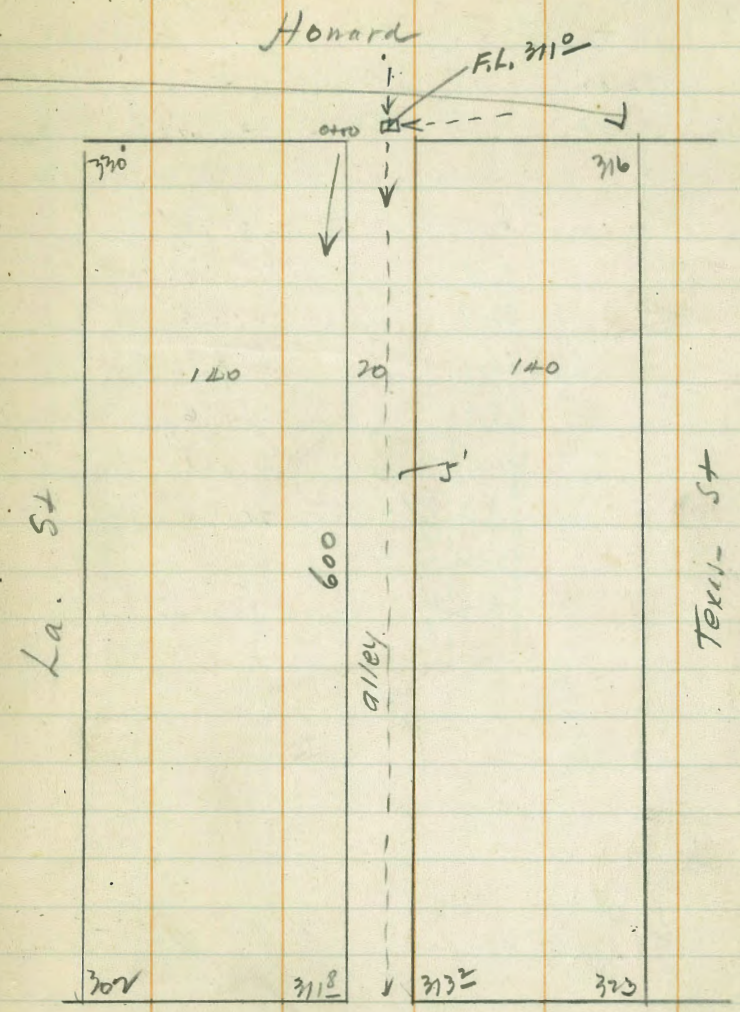 Howard
F.L. 311⁰
0+00
330
316
140
20
140
5'
La. St
600
alley
Texas St
302
311⁸
313²
323